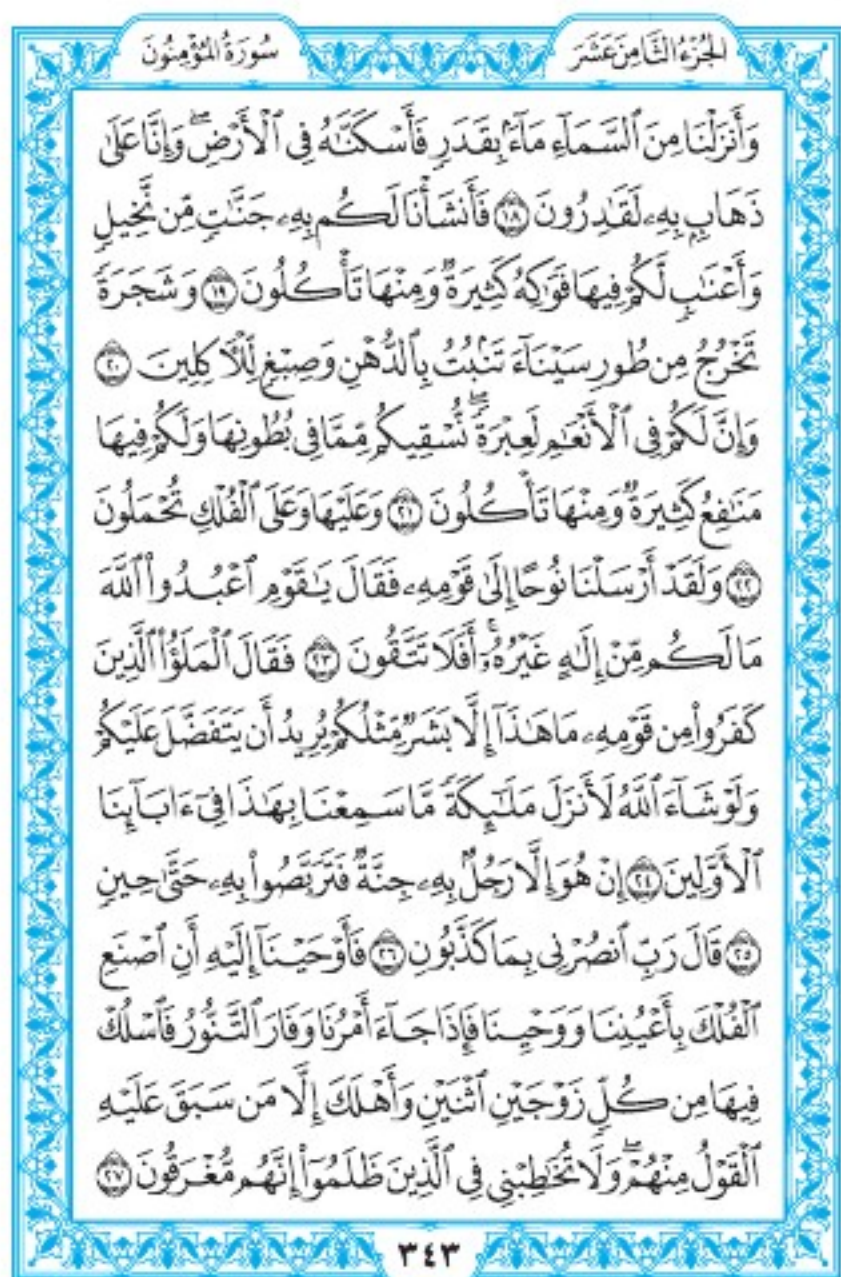 الجُزْءُ الثَّامِنَ عَشَرَ
سُورَةُ المُؤْمِنُونَ
وَأَنزَلْنَا مِنَ ٱلسَّمَآءِ مَآءَۢ بِقَدَرٖ فَأَسْكَنَّٰهُ فِي ٱلْأَرْضِۖ وَإِنَّا عَلَىٰ
ذَهَابِۭ بِهِۦ لَقَٰدِرُونَ ١٨ فَأَنشَأْنَا لَكُم بِهِۦ جَنَّٰتٖ مِّن نَّخِيلٖ
وَأَعْنَٰبٖ لَّكُمْ فِيهَا فَوَٰكِهُ كَثِيرَةٞ وَمِنْهَا تَأْكُلُونَ ١٩ وَشَجَرَةٗ
تَخْرُجُ مِن طُورِ سَيْنَآءَ تَنۢبُتُ بِٱلدُّهْنِ وَصِبْغٖ لِّلْأٓكِلِينَ ٢٠
وَإِنَّ لَكُمْ فِي ٱلْأَنْعَٰمِ لَعِبْرَةٗۖ نُّسْقِيكُم مِّمَّا فِي بُطُونِهَا وَلَكُمْ فِيهَا
مَنَٰفِعُ كَثِيرَةٞ وَمِنْهَا تَأْكُلُونَ ٢١ وَعَلَيْهَا وَعَلَى ٱلْفُلْكِ تُحْمَلُونَ
٢٢ وَلَقَدْ أَرْسَلْنَا نُوحًا إِلَىٰ قَوْمِهِۦ فَقَالَ يَٰقَوْمِ ٱعْبُدُوا۟ ٱللَّهَ
مَا لَكُم مِّنْ إِلَٰهٍ غَيْرُهُۥٓۚ أَفَلَا تَتَّقُونَ ٢٣ فَقَالَ ٱلْمَلَؤُا۟ ٱلَّذِينَ
كَفَرُوا۟ مِن قَوْمِهِۦ مَا هَٰذَآ إِلَّا بَشَرٞ مِّثْلُكُمْ يُرِيدُ أَن يَتَفَضَّلَ عَلَيْكُمْ
وَلَوْ شَآءَ ٱللَّهُ لَأَنزَلَ مَلَٰٓئِكَةٗ مَّا سَمِعْنَا بِهَٰذَا فِيٓ ءَابَآئِنَا
ٱلْأَوَّلِينَ ٢٤ إِنْ هُوَ إِلَّا رَجُلُۢ بِهِۦ جِنَّةٞ فَتَرَبَّصُوا۟ بِهِۦ حَتَّىٰ حِينٖ
٢٥ قَالَ رَبِّ ٱنصُرْنِي بِمَا كَذَّبُونِ ٢٦ فَأَوْحَيْنَآ إِلَيْهِ أَنِ ٱصْنَعِ
ٱلْفُلْكَ بِأَعْيُنِنَا وَوَحْيِنَا فَإِذَا جَآءَ أَمْرُنَا وَفَارَ ٱلتَّنُّورُ فَٱسْلُكْ
فِيهَا مِن كُلّٖ زَوْجَيْنِ ٱثْنَيْنِ وَأَهْلَكَ إِلَّا مَن سَبَقَ عَلَيْهِ
ٱلْقَوْلُ مِنْهُمْۖ وَلَا تُخَٰطِبْنِي فِي ٱلَّذِينَ ظَلَمُوٓا۟ إِنَّهُم مُّغْرَقُونَ ٢٧
٣٤٣